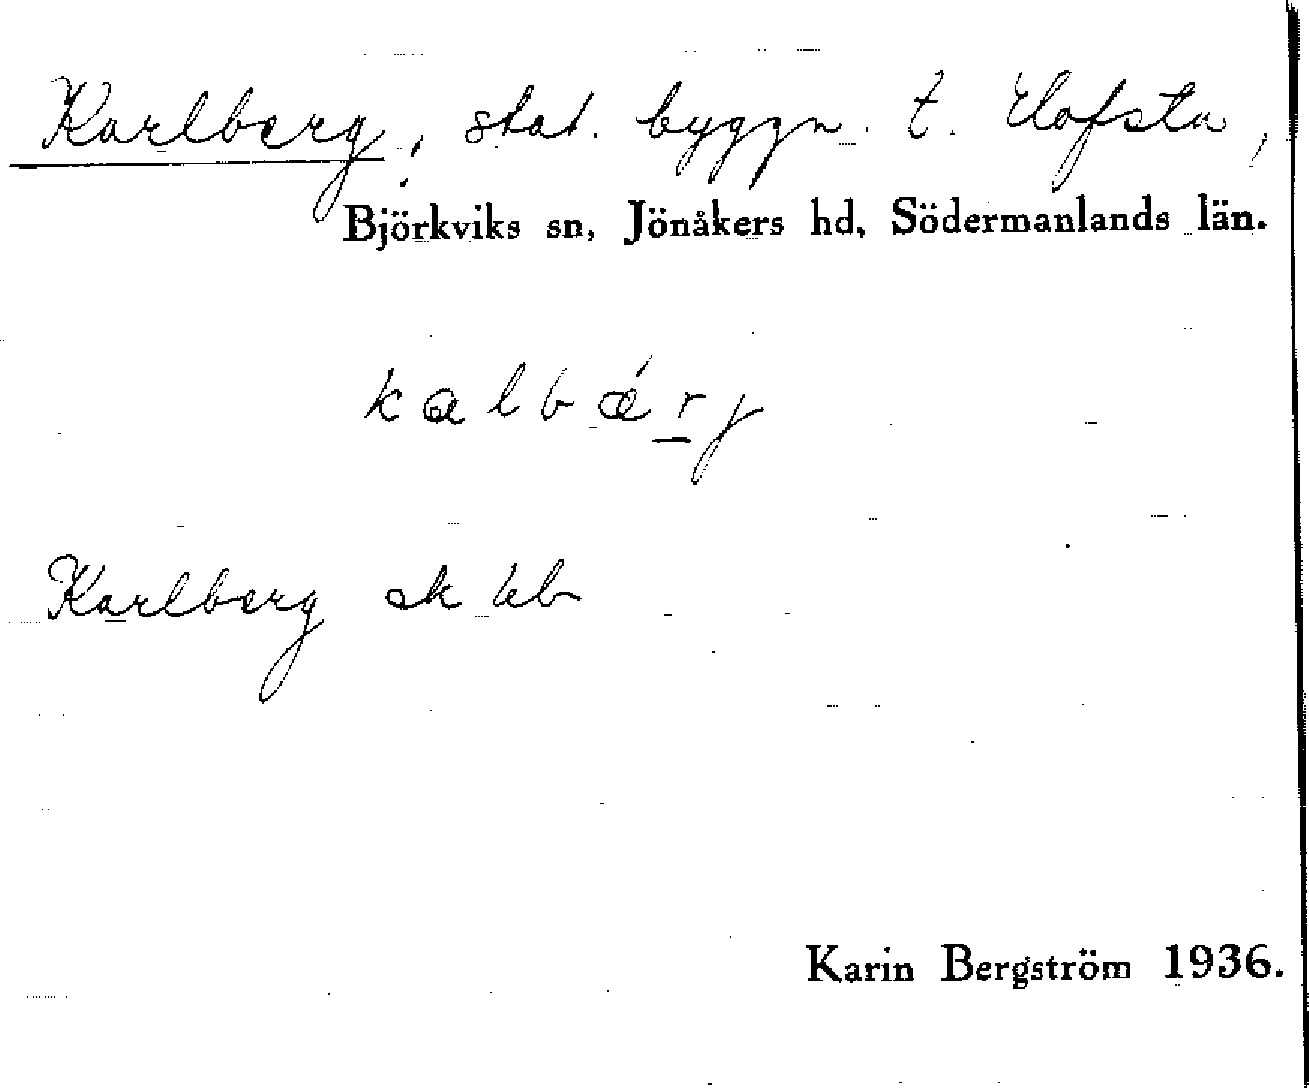 Karlberg, stat. byggn. t. Elofsta,
Björkviks sn, Jönåkers hd, Södermanlands län.
kalbǽrj
Karlberg ek kb
Karin Bergström 1936.